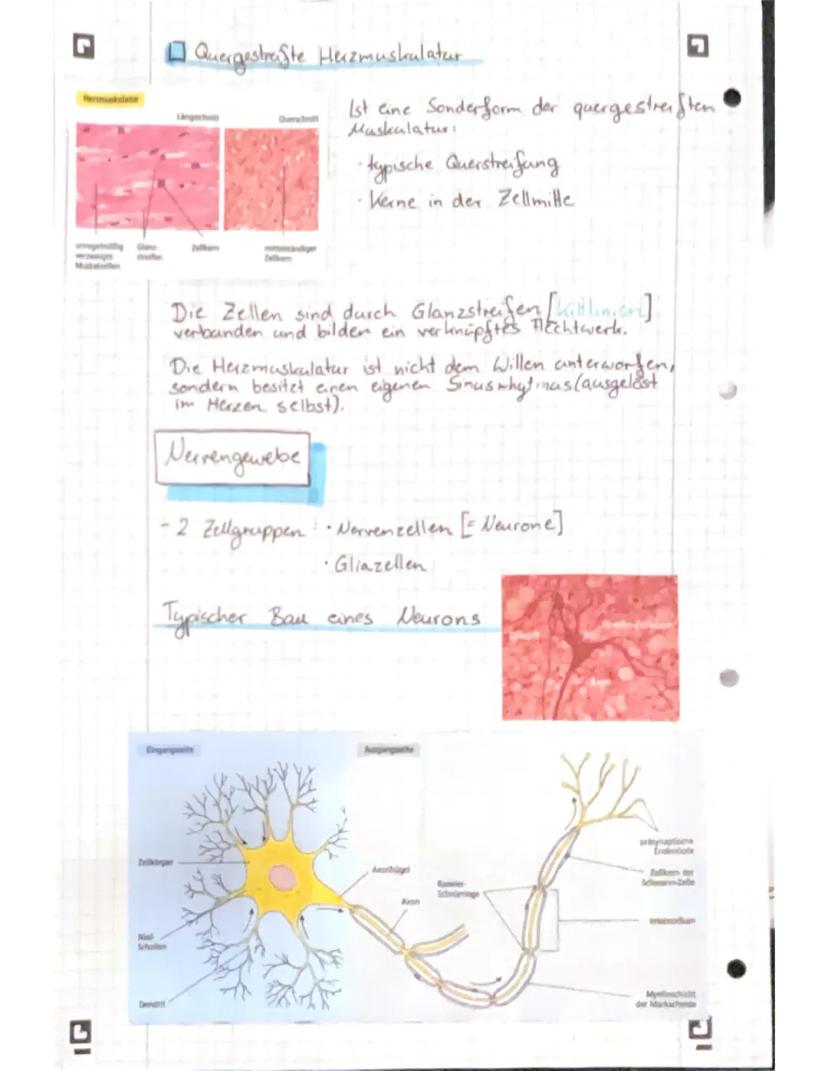 Quergestreifte Herzmuskulatur
Herzmuskulatur
Längsschnitt
Querschnitt
unregelmäßig verzweigte Muskelzellen
Glanzstreifen
Zellkern
mittelständiger Zellkern
Ist eine Sonderform der quergestreiften
Muskulatur:
· typische Querstreifung
· Kerne in der Zellmitte
Die Zellen sind durch Glanzstreifen [Kittlinien]
verbunden und bilden ein verknüpftes Flechtwerk.
Die Herzmuskulatur ist nicht dem Willen unterworfen,
sondern besitzt einen eigenen Sinusrhytmus (ausgelöst
im Herzen selbst).
Nervengewebe
- 2 Zellgruppen : · Nervenzellen [= Neurone]
· Gliazellen
Typischer Bau eines Neurons
Eingangsseite
Ausgangsseite
Zellkörper
Axonhügel
Axon
Ranvier-
Schnürringe
Nissl-
Schollen
Dendrit
präsynaptische
Endknöpfe
Zellkern der
Schwann-Zelle
Internodium
Myelinschicht
der Markscheide